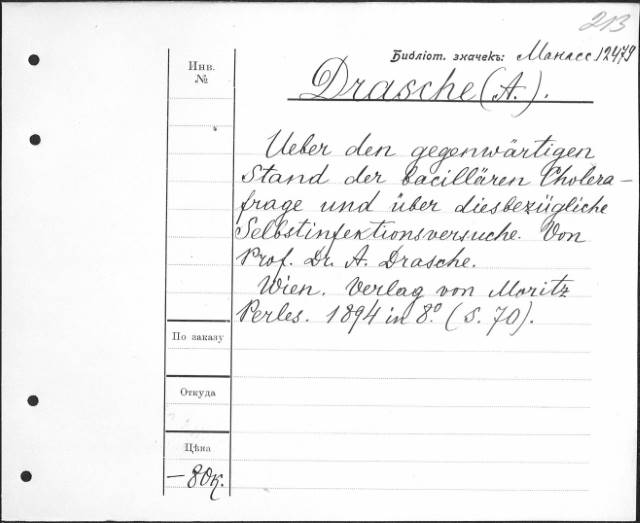 213
Библіот. значекъ: Манасс 12479
Инв.
№
Drasche (A.).
Ueber den gegenwärtigen
Stand der bacillären Cholera-
frage und über diesbezügliche
Selbstinfektionsversuche. Von
Prof. Dr. A. Drasche.
Wien. Verlag von Moritz
Perles. 1894 in 8º. (S. 70).
По заказу
Откуда
Цѣна
— 80к.